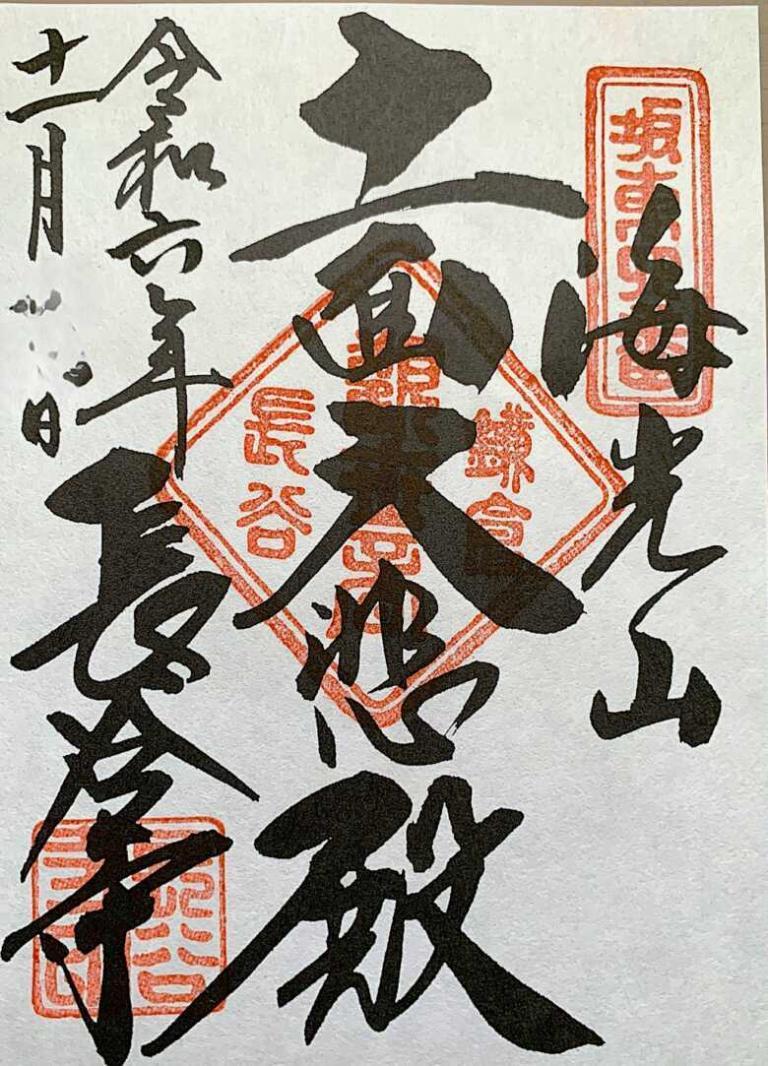 坂東四番
海光山
鎌倉
十一面大悲殿
長谷
令和六年
十一月 日
長谷寺